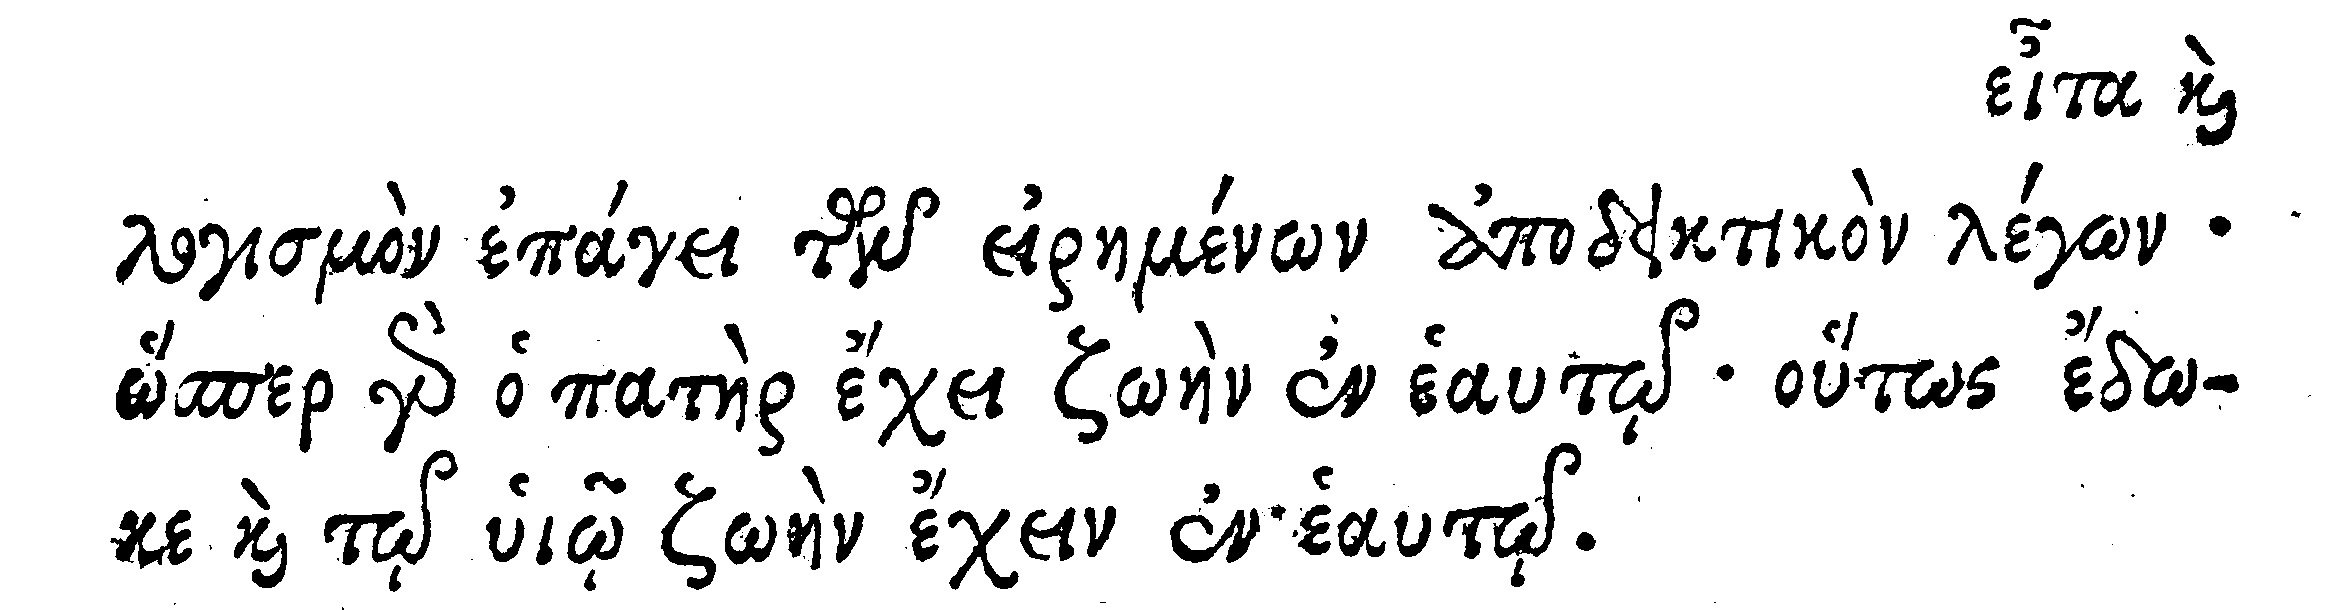 εἶτα καὶ
λογισμὸν ἐπάγει τῶν εἰρημένων ἀποδεικτικὸν λέγων·
ὥσπερ γὰρ ὁ πατὴρ ἔχει ζωὴν ἐν ἑαυτῷ· οὕτως ἔδω-
κε καὶ τῷ υἱῷ ζωὴν ἔχειν ἐν ἑαυτῷ.